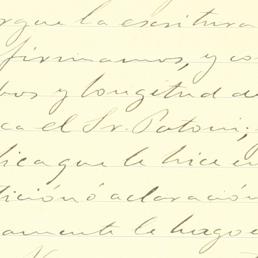 rque la escritura
firmamos, y co
bos y longitud de
ca el Sr. Patoni;
lica que le hice en
dición ó aclaración
amente le hago